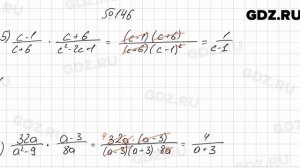 №146
GDZ.RU
5) (c-1)/(c+6) · (c+6)/(c²-2c+1) = ((c-1)(c+6))/((c+6)(c-1)²) = 1/(c-1)
) 32a/(a²-9) · (a-3)/8a = (⁴32a·(a-3))/((a-3)(a+3)·8a) = 4/(a+3)
GDZ.RU